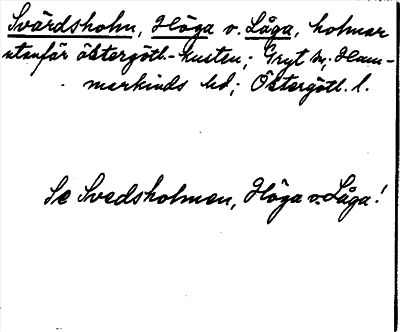 Svärdsholm, Höga o. Låga, holmar
utanför östergötl.-kusten; Gryt sn; Ham-
markinds hd; Östergötl. l.
Se Svedsholmen, Höga o. Låga!